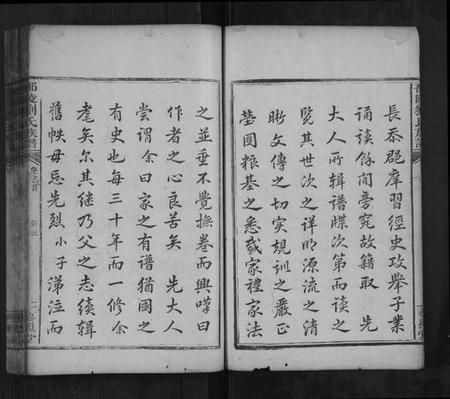 長泰郡庠習經史攻舉子業
誦讀餘間旁究故籍取 先
大人所輯譜牒次第而讀之
覽其世次之詳明源流之清
晰文傳之切實規訓之嚴正
塋圖糧基之悉載家禮家法
之並垂不覺撫卷而興嘆曰
作者之心良苦矣 先大人
嘗謂余曰家之有譜猶國之
有史也每三十年而一修余
耄矣尔其繼乃父之志續輯
舊帙毋忘先烈小子涕泣而
邵陵劉氏族譜
卷之首